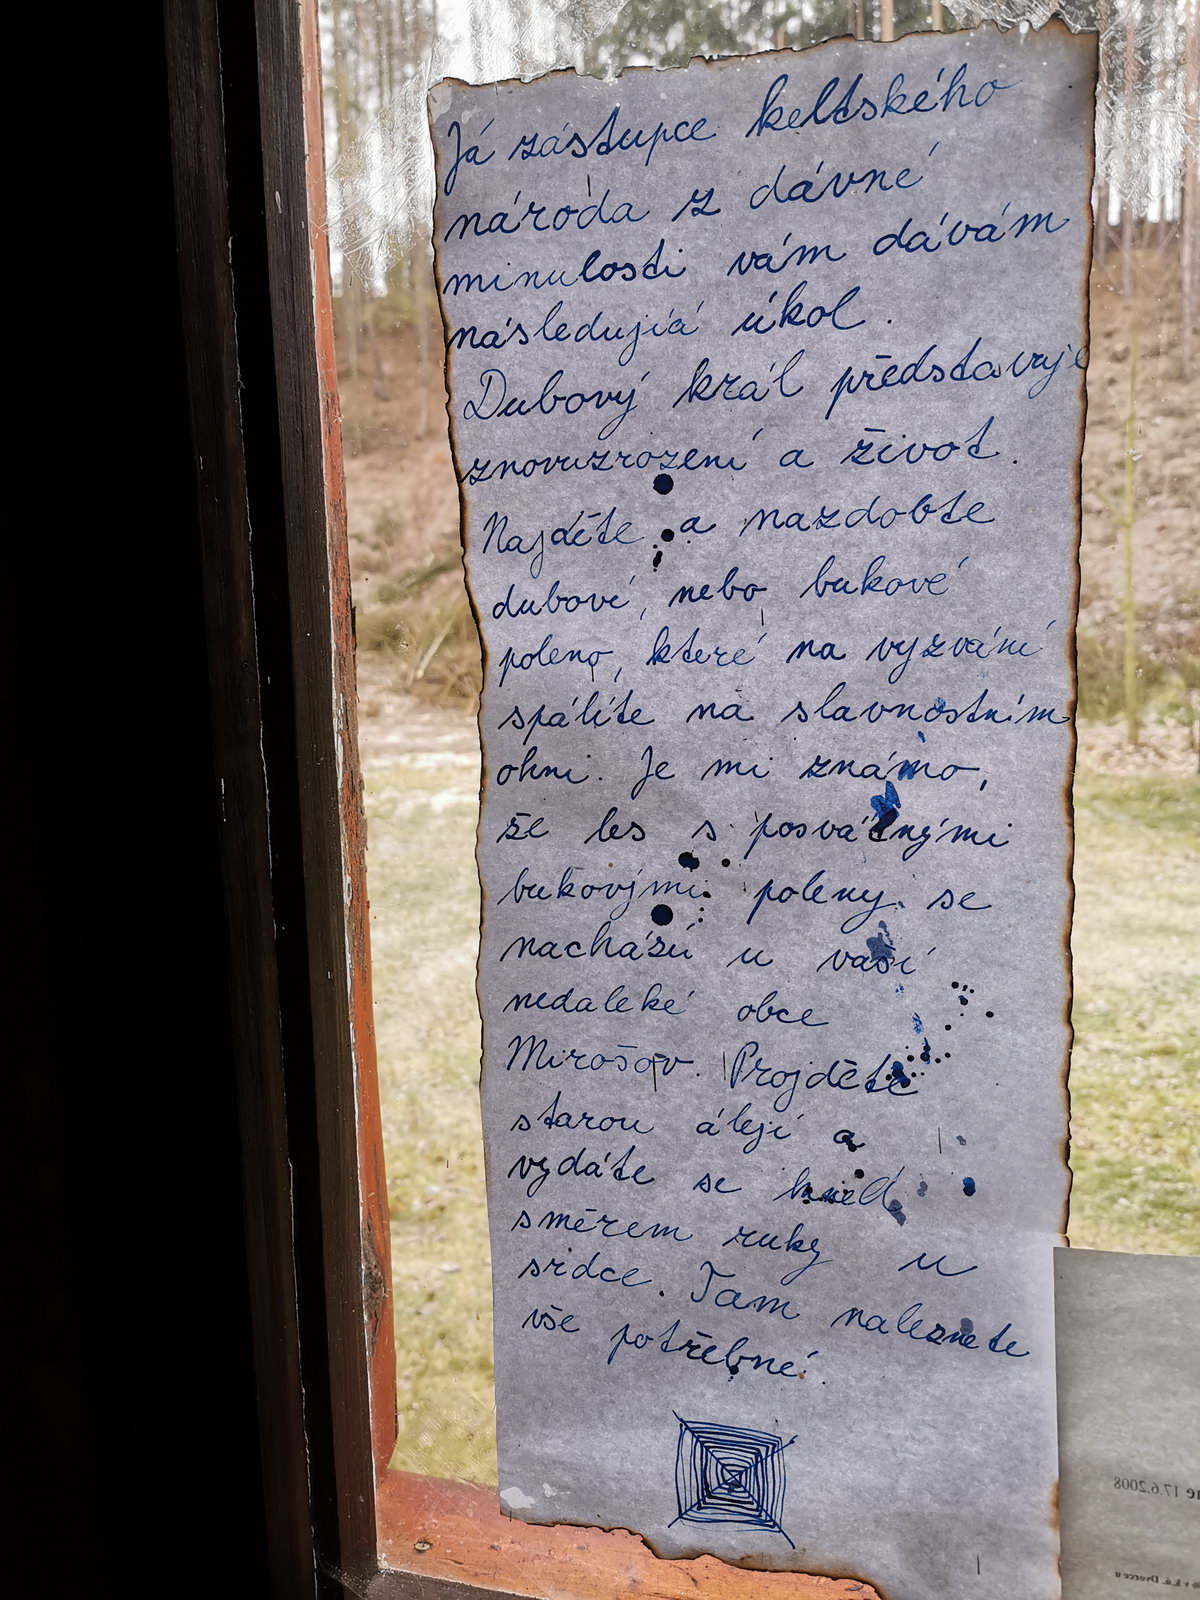 Já zástupce keltského
národa z dávné
minulosti vám dávám
následující úkol.
Dubový král představuje
znovuzrození a život.
Najděte a nazdobte
dubové, nebo bukové
poleno, které na vyzvání
spálíte na slavnostním
ohni. Je mi známo,
že les s posvátnými
bukovými poleny se
nachází u vaší
nedaleké obce
Mirošov. Projděte
starou álejí a
vydáte se hned
směrem ruky u
srdce. Tam naleznete
vše potřebné.
17.6.2008
Dvorce u